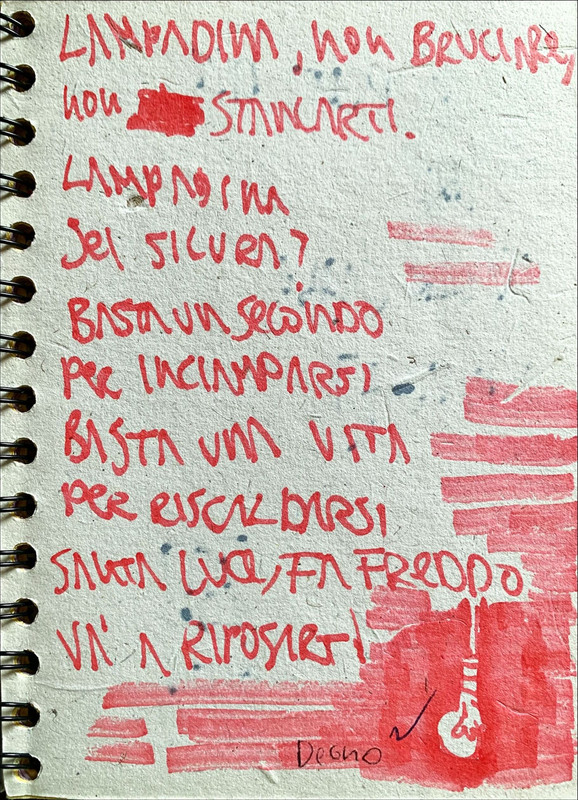 LAMPADINA, non BRUCIARE,
non STANCARTI.
LAMPADINA
Sei SICURA?
BASTA UN SECONDO
per INCIAMPARSI
BASTA UNA VITA
PER RISCALDARSI
SANTA LUCE, FA FREDDO
VA' A RIPOSARTI